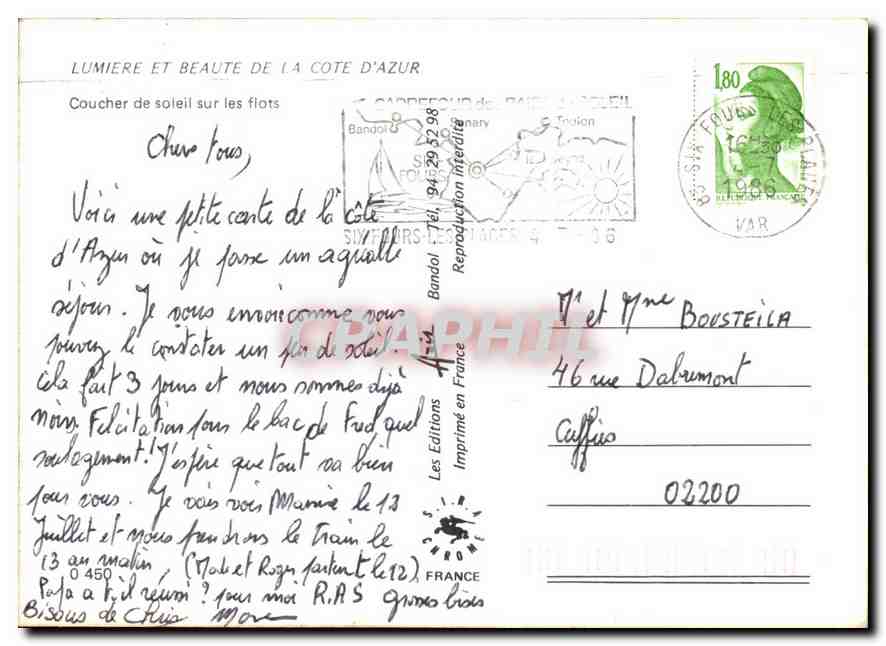 LUMIERE ET BEAUTE DE LA COTE D'AZUR
Coucher de soleil sur les flots
Chers tous,
Voici une petite carte de la côte
d'Azur où je passe un agréable
séjour. Je vous envoie comme vous
pouvez le constater un peu de soleil
cela fait 3 jours et nous sommes déjà
noirs. Felicitations pour le bac de Fred, quel
soulagement! J'espère que tout va bien
pour vous. Je vais voir Mamie le 12
Juillet et nous prendrons le train le
13 au matin, (Mado et Roger partent le 12)
Papa a t'il réussi? pour moi R.A.S grosses bises
Bisous de Chris
0 450
Les Editions Azir Bandol Tél. 94 29 52 98
Imprimé en France Reproduction interdite
SIRA CHROME
FRANCE
CARREFOUR de la BAIE du SOLEIL
Bandol Sanary Toulon
SIX
FOURS
SIX FOURS-LES-PLAGES 4 7 86
1,80
REPUBLIQUE FRANCAISE
83 SIX FOURS LES PLAGES
16H30
-7
1986
VAR
Mr et Mme BOUSTEILA
46 rue Dabremont
02200
CPAPHIL